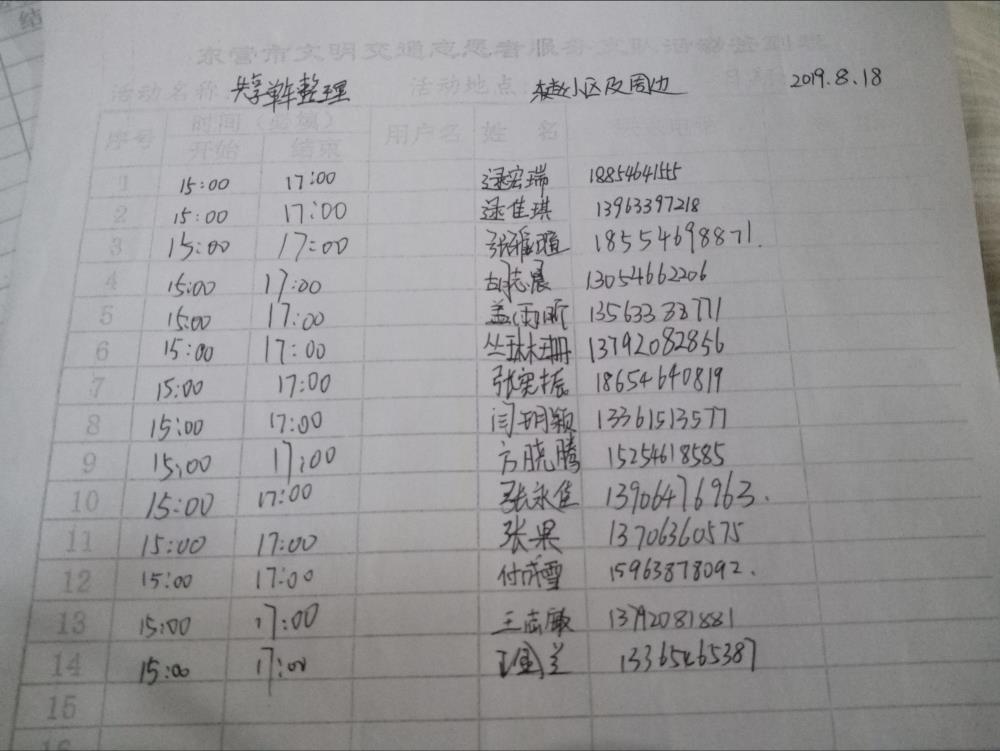 东营市文明交通志愿者服务支队活动签到表
活动名称: 共享单车整理 活动地点: 小区及周边 日期: 2019.8.18
序号 时间(必填) 用户名 姓 名 联系电话
开始 结束
1 15:00 17:00 逯宏瑞 18854641555
2 15:00 17:00 逯佳琪 13963397218
3 15:00 17:00 张雅萱 18554698871.
4 15:00 17:00 胡志晨 13054662206
5 15:00 17:00 盖雨昕 13563333771
6 15:00 17:00 丛琳珊 13792082856
7 15:00 17:00 张宪振 18654640819
8 15:00 17:00 闫玥颖 13361513577
9 15:00 17:00 方晓腾 15254618585
10 15:00 17:00 张永佳 13906476963.
11 15:00 17:00 张果 13706360575
12 15:00 17:00 付成雪 15963878092.
13 15:00 17:00 王志敏 13792081881
14 15:00 17:00 王国兰 13365465387
15
16